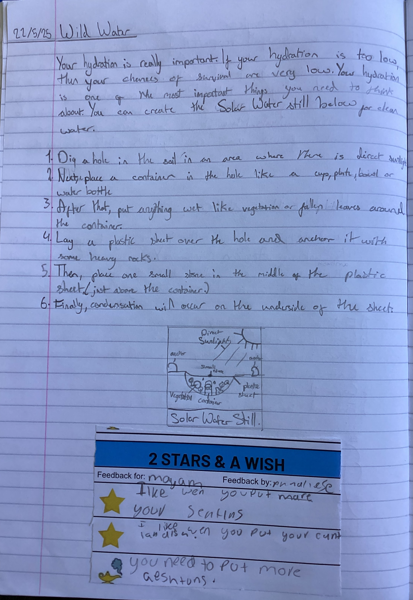 22/5/25 Wild Water
Your hydration is really important. If your hydration is too low,
then your chances of survival are very low. Your hydration
is one of the most important things you need to think
about. You can create the Solar Water still below for clean
water.
1. Dig a hole in the soil in an area where there is direct sunlight
2. Next, place a container in the hole like a cup, plate, bowl or
water bottle
3. After that, put anything wet like vegetation or fallen leaves around
the container.
4. Lay a plastic sheet over the hole and anchor it with
some heavy rocks.
5. Then, place one small stone in the middle of the plastic
sheet (just above the container)
6. Finally, condensation will occur on the underside of the sheet.
Direct
Sunlight
Vegetation
container
plastic
sheet
Solar Water Still.
2 STARS & A WISH
Feedback for:
Feedback by:
I like wen you put more
your
I like
wen you put your
you need to put more